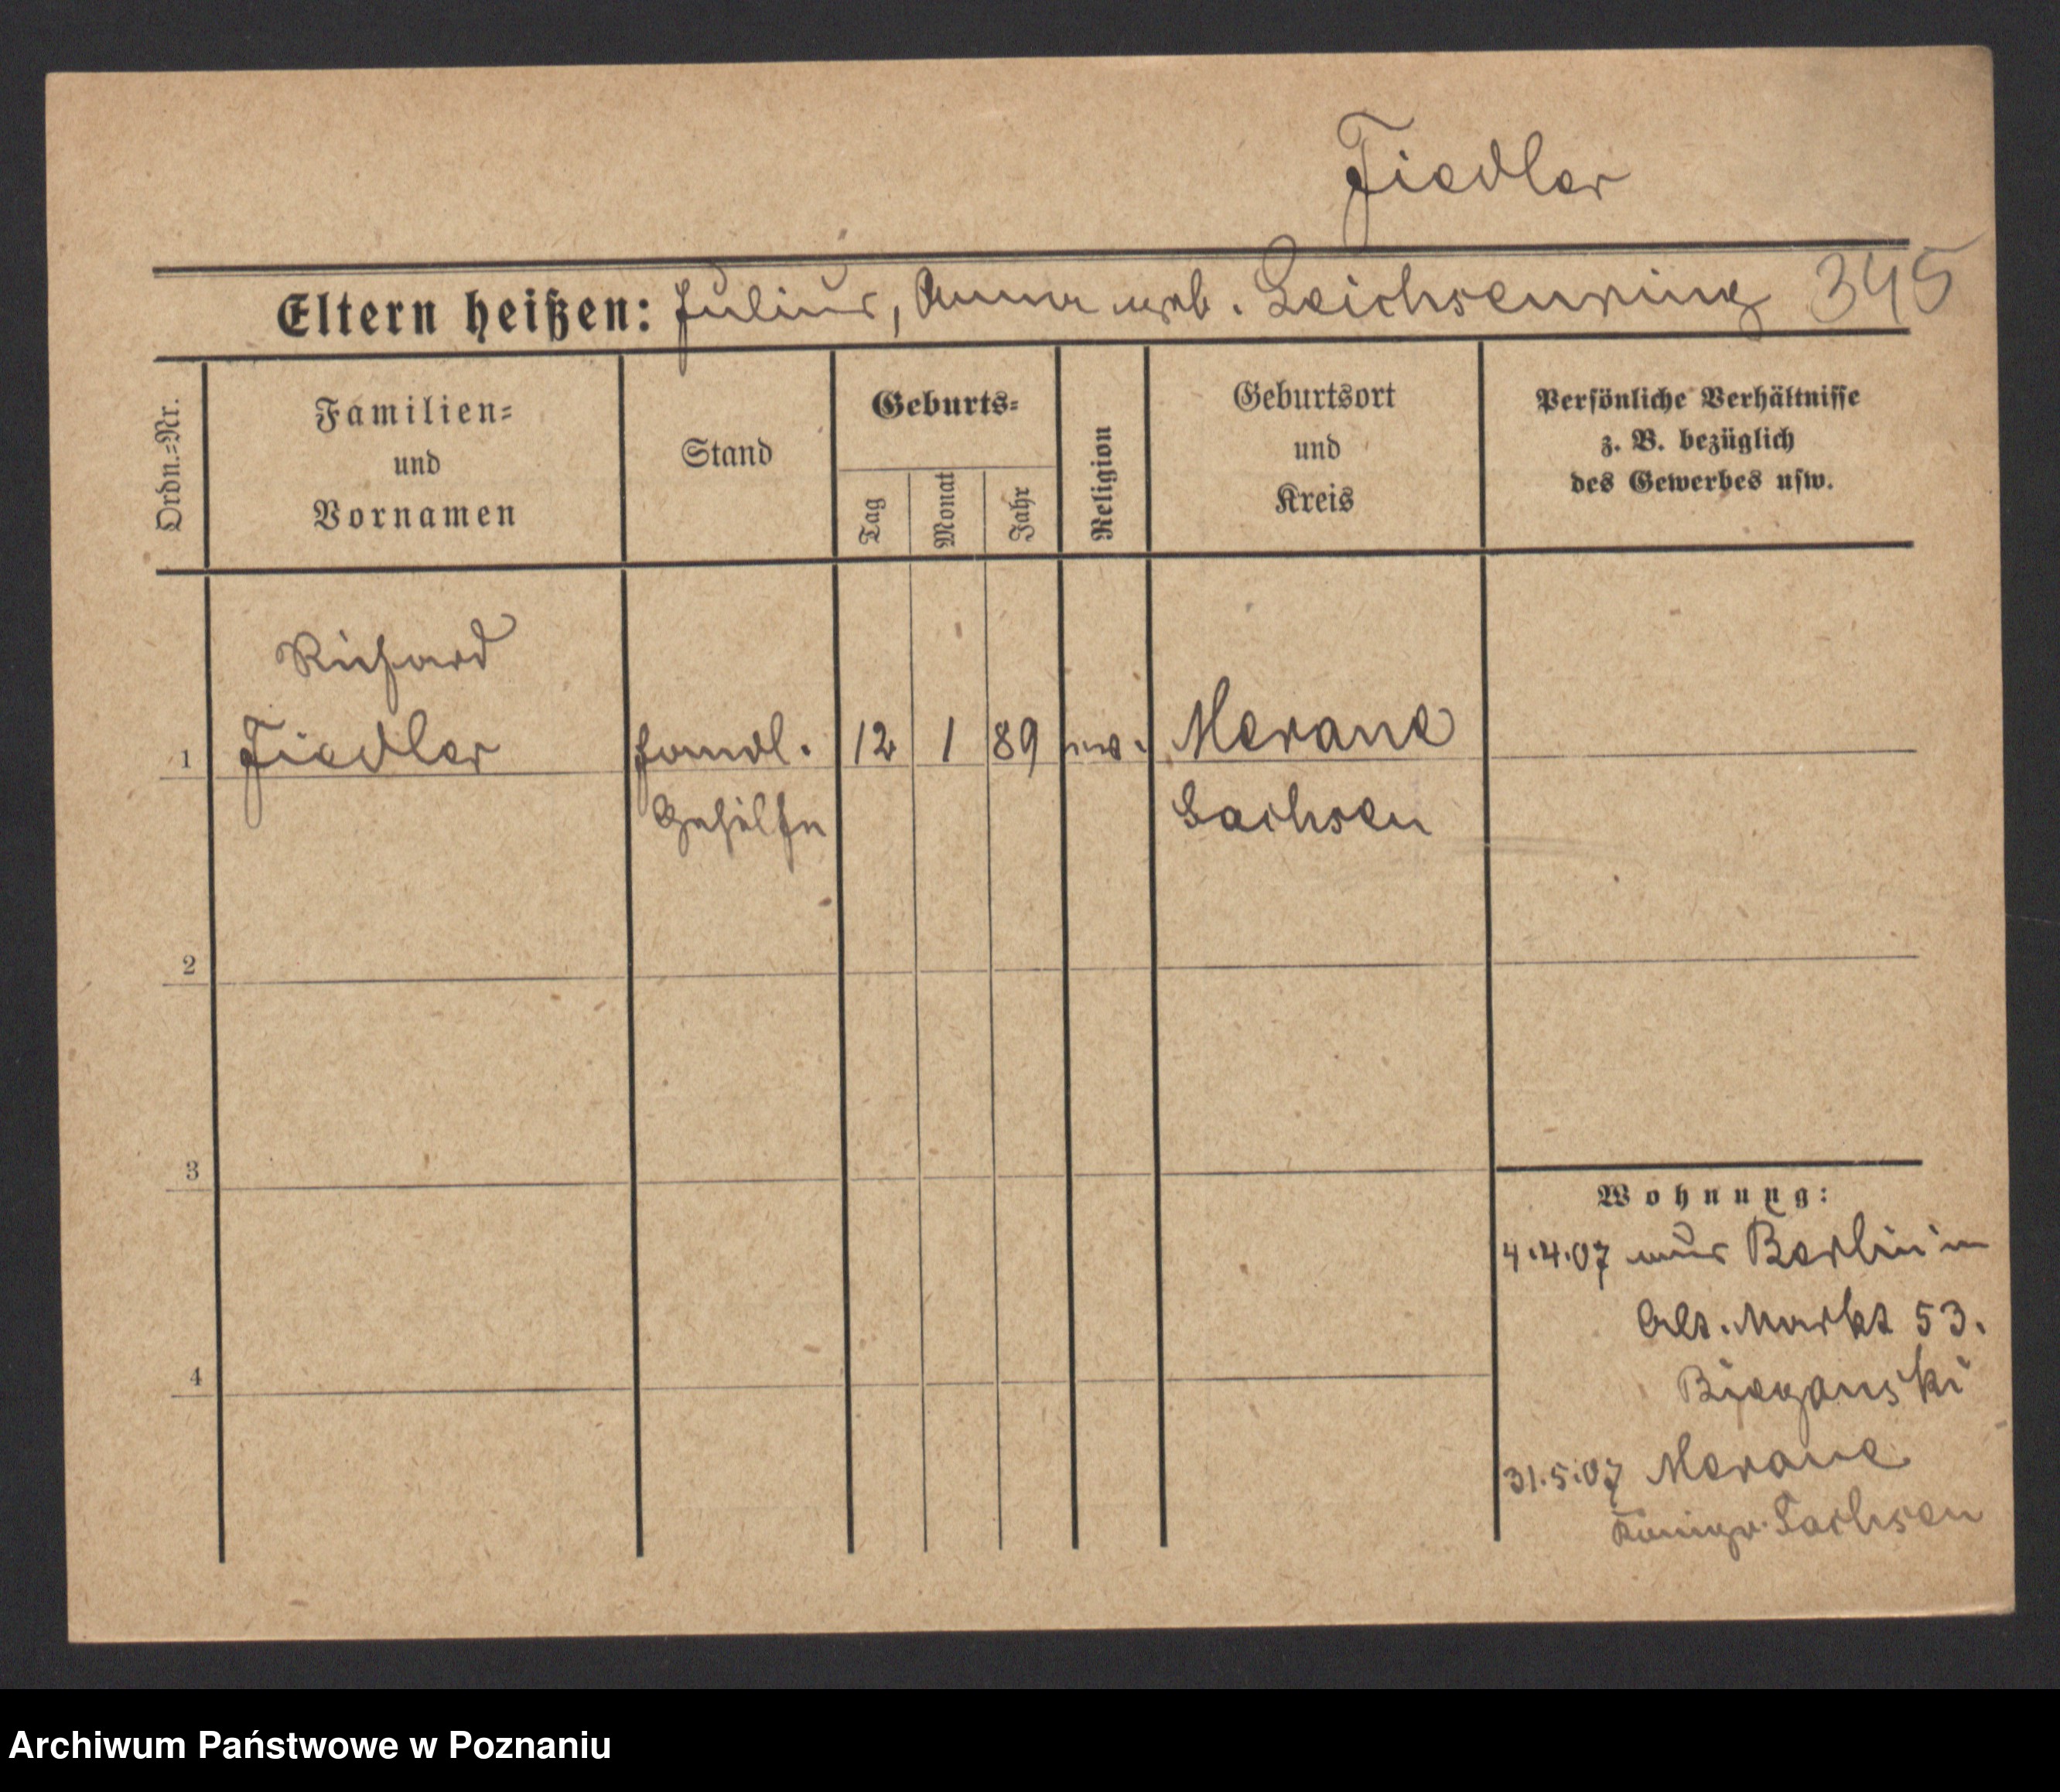 Fiedler
Eltern heißen: Julius, Anna geb. Leichsenring 345
Ordn.=Nr.
Familien=
und
Vornamen
Stand
Geburts=
Tag
Monat
Jahr
Religion
Geburtsort
und
Kreis
Persönliche Verhältnisse
z. B. bezüglich
des Gewerbes usw.
Richard
1 Fiedler Handl. 12 1 89 Merane
Gehilfe Sachsen
2
3
4
Wohnung:
4.4.07 aus Berlin in
Alt. Markt 53.
Bieganski
31.5.07 Merane
Königr. Sachsen
Archiwum Państwowe w Poznaniu